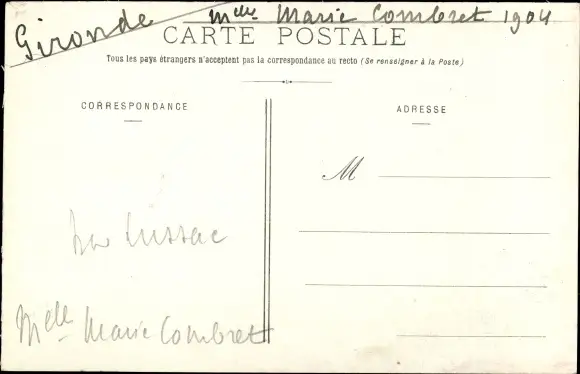 Gironde
Melle Marie Combret 1904
CARTE POSTALE
Tous les pays étrangers n'acceptent pas la correspondance au recto (Se renseigner à la Poste)
CORRESPONDANCE
ADRESSE
M
Lussac
Melle Marie Combret